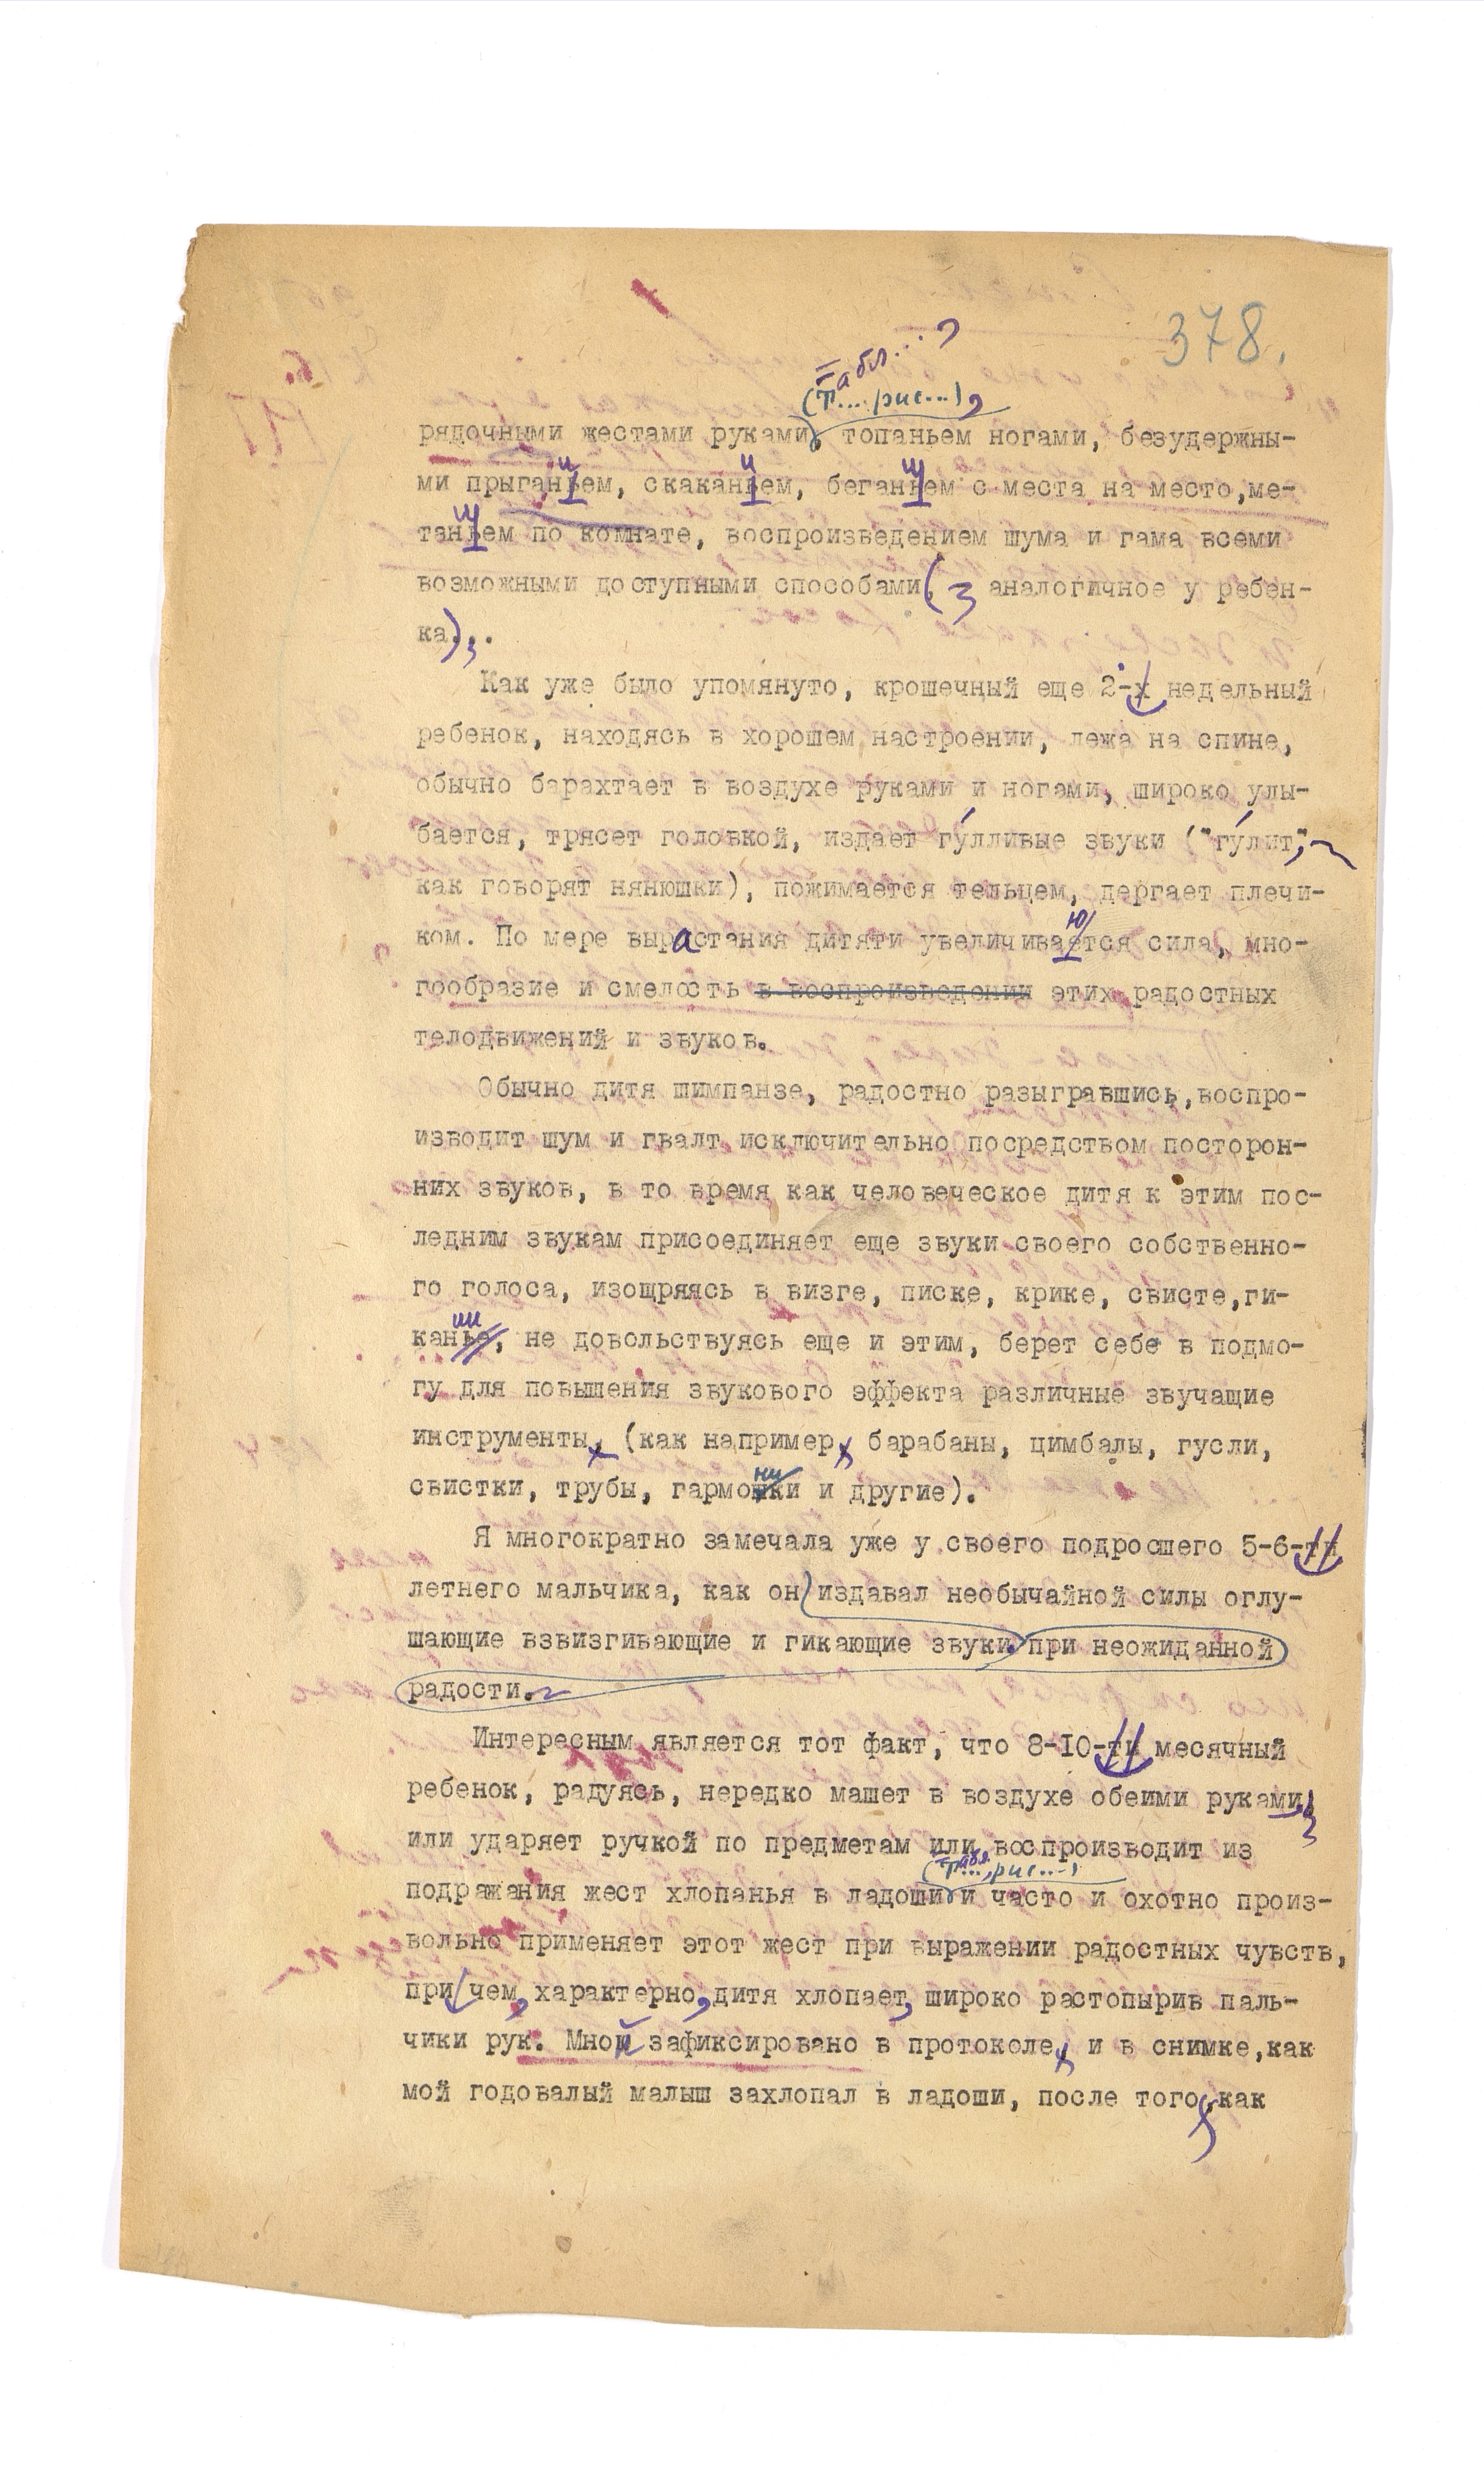 378.
(Табл... рис...),
рядочными жестами руками, топаньем ногами, безудержны-
ми прыганием, скаканием, беганием с места на место, ме-
танием по комнате, воспроизведением шума и гама всеми
возможными доступными способами (аналогичное у ребен-
ка)...
Как уже было упомянуто, крошечный еще 2-х недельный
ребенок, находясь в хорошем настроении, лежа на спине,
обычно барахтает в воздухе руками и ногами, широко улы-
бается, трясет головкой, издает гу́лливые звуки ("гу́лит",
как говорят нянюшки), пожимается тельцем, дергает плечи-
ком. По мере вырастания дитяти увеличиваются сила, мно-
гообразие и смелость в воспроизведении этих радостных
телодвижений и звуков.
Обычно дитя шимпанзе, радостно разыгравшись, воспро-
изводит шум и гвалт исключительно посредством посторон-
них звуков, в то время как человеческое дитя к этим пос-
ледним звукам присоединяет еще звуки своего собственно-
го голоса, изощряясь в визге, писке, крике, свисте, ги-
кании, не довольствуясь еще и этим, берет себе в подмо-
гу для повышения звукового эффекта различные звучащие
инструменты, (как например, барабаны, цимбалы, гусли,
свистки, трубы, гармоники и другие).
Я многократно замечала уже у своего подросшего 5-6-ти
летнего мальчика, как он издавал необычайной силы оглу-
шающие взвизгивающие и гикающие звуки при неожиданной
радости.
Интересным является тот факт, что 8-10-ти месячный
ребенок, радуясь, нередко машет в воздухе обеими руками,
или ударяет ручкой по предметам или воспроизводит из
(Табл..., рис...)
подражания жест хлопанья в ладоши и часто и охотно произ-
вольно применяет этот жест при выражении радостных чувств,
при чем, характерно, дитя хлопает, широко растопырив паль-
чики рук. Мной зафиксировано в протоколе, и в снимке, как
мой годовалый малыш захлопал в ладоши, после того, как